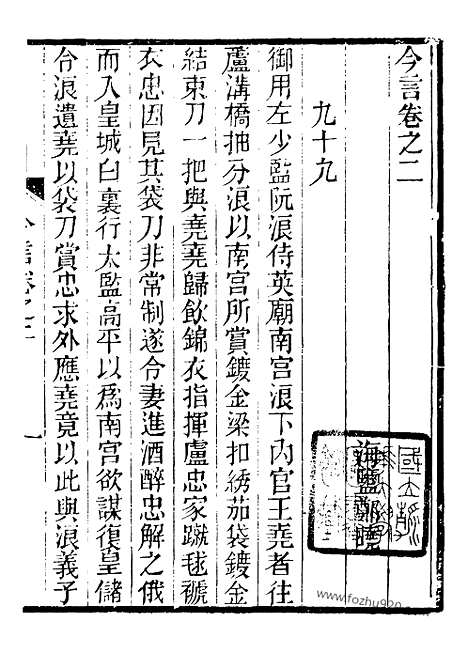 今言卷之二
海鹽鄭曉
九十九
御用左少監阮浪侍英廟南宮浪下內官王堯者往
蘆溝橋抽分浪以南宮所賞鍍金梁扣綉茄袋鍍金
結束刀一把與堯堯歸飲錦衣指揮盧忠家蹴毬褫
衣忠因見其袋刀非常制遂令妻進酒醉忠解之俄
而入皇城白裏行太監高平以爲南宮欲謀復皇儲
令浪遺堯以袋刀賞忠求外應堯竟以此與浪義子
今言卷之二
一
www.fozhu920.com